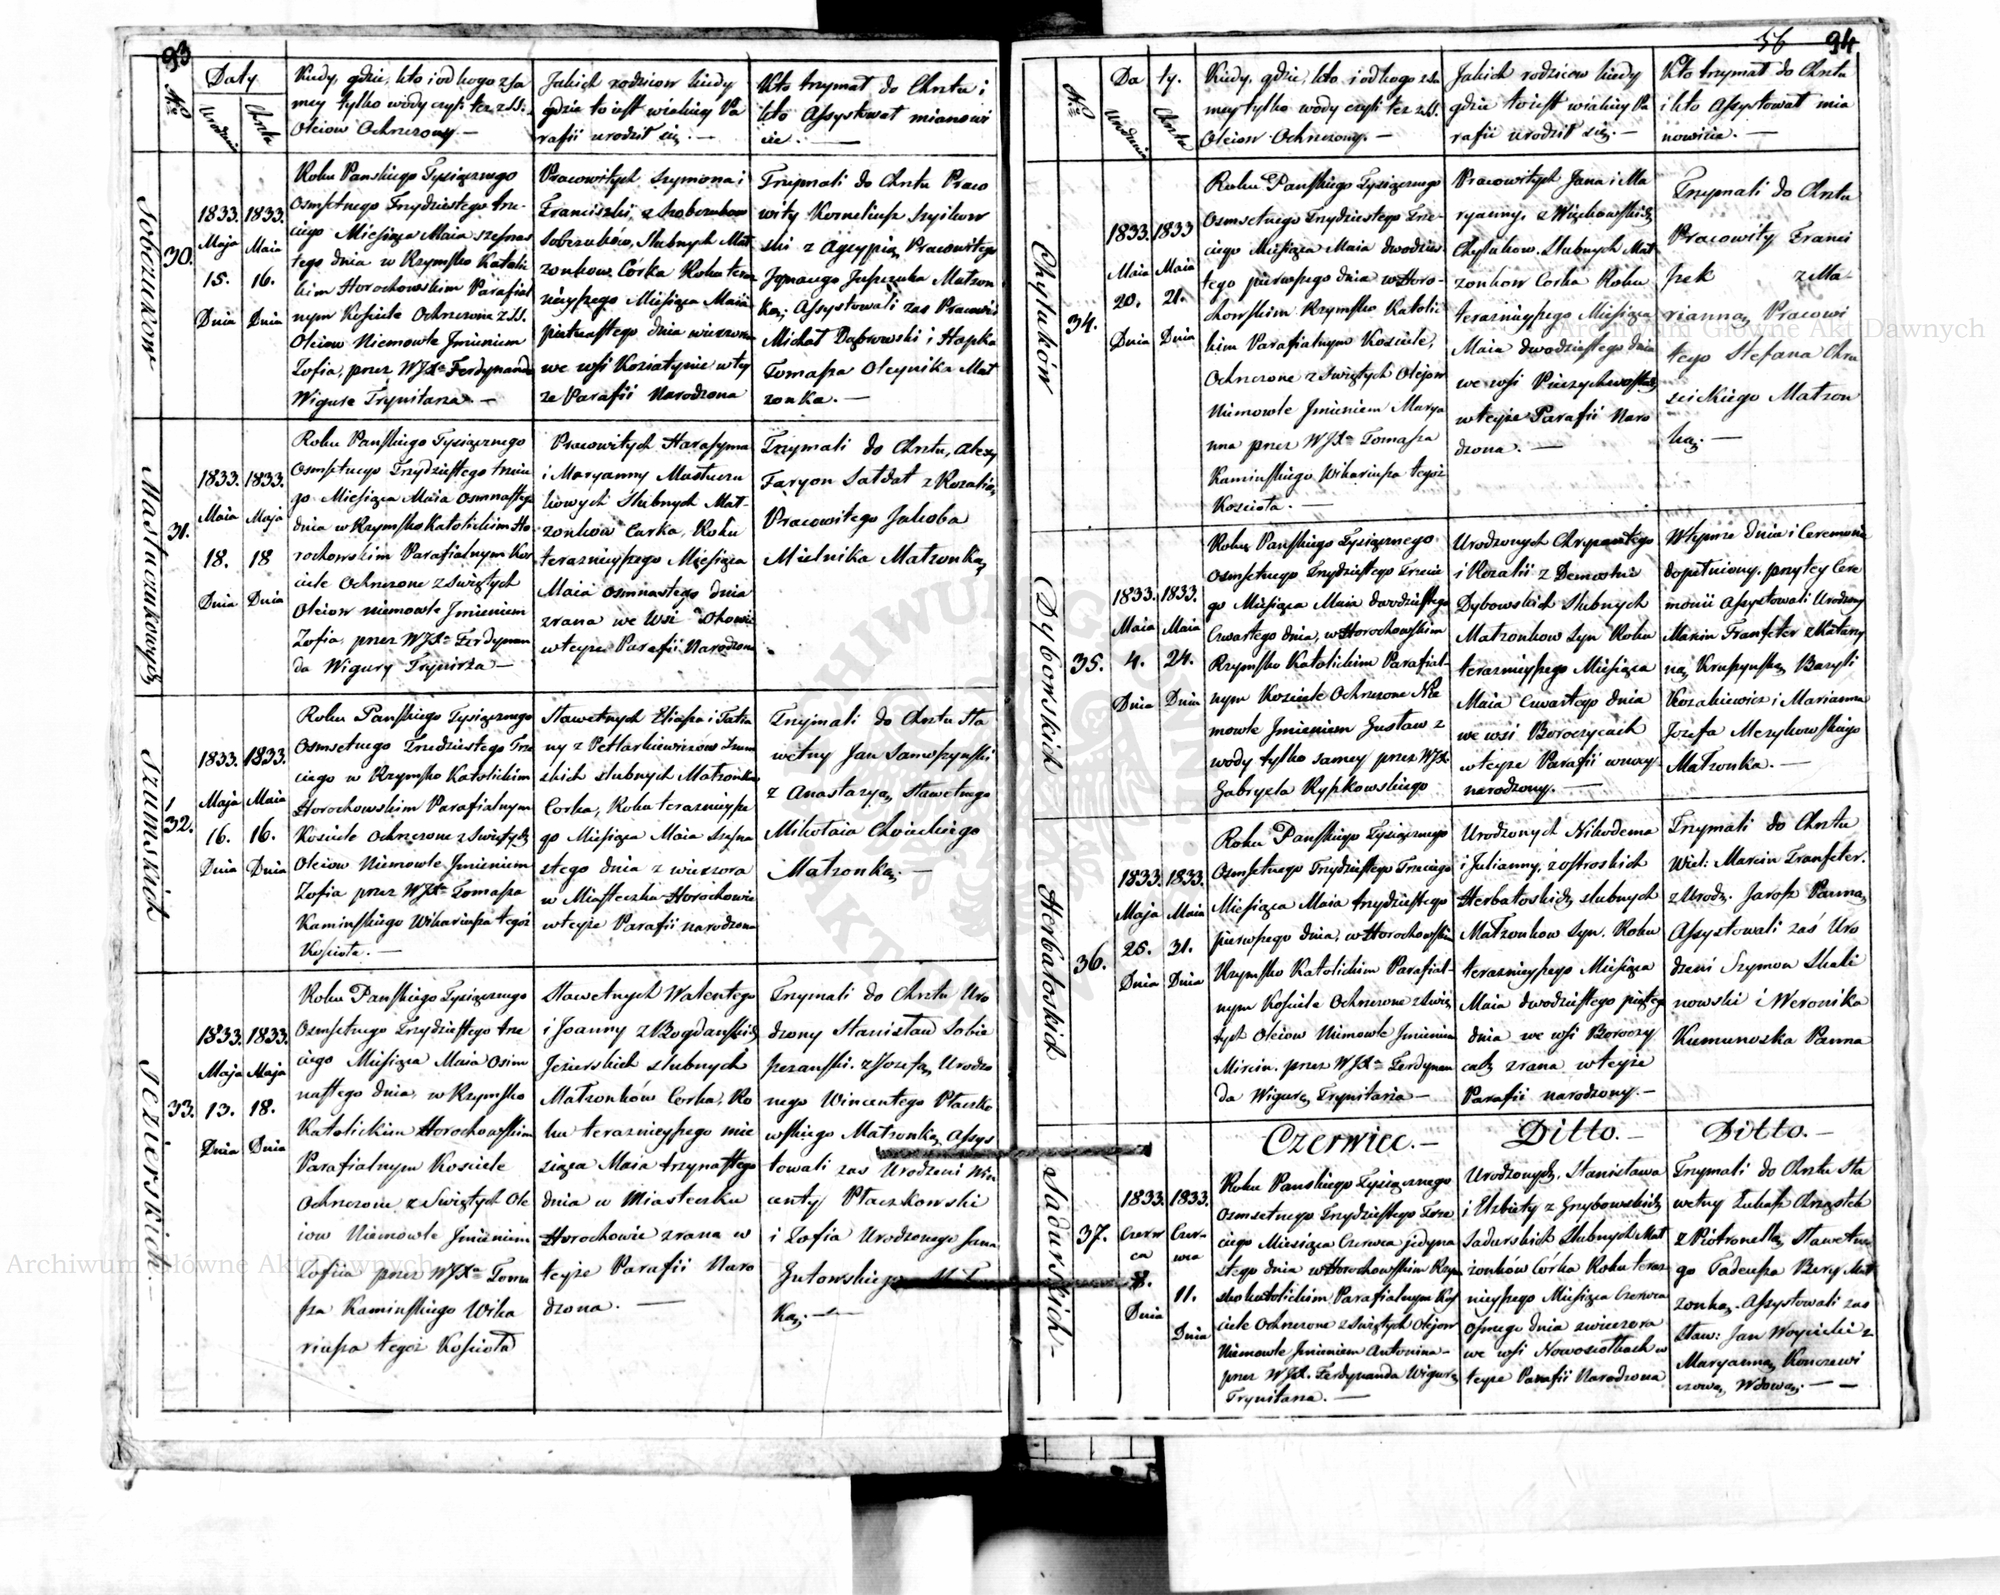 93
No
Daty
Urodzenia
Chrztu
Kiedy, gdzie, kto i od kogo z sa
mey tylko wody czyli też z SS.
Oleiow Ochrzczony. —
Jakich rodzicow kiedy
gdzie to iest w iakiey Pa
rafii urodził się. —
Kto trzymał do Chrztu i
kto Assystował mianowi
cie. —
Sobczuków
30.
1833.
Maja
15.
Dnia
1833.
Maia
16.
Dnia
Roku Panskiego Tysiącznego
Osmsetnego Trzydziestego trze-
ciego Miesiąca Maia szesnas
tego dnia w Rzymsko Katolic
kim Horochowskim Parafial
nym Kosciele Ochrzczone z SS.
Oleiow Niemowle Jmieniem
Zofia, przez WJX. Ferdynanda
Wigurę Trynitarza. —
Pracowitych Szymona i
Franciszki, z
Sobczuków, Slubnych Mał
zonkow Corka Roku teraz
nieyszego Miesiąca Maia
piętnastego dnia wieczorem
we wsi Koziatynie w tey
że Parafii Narodzona
Trzymali do Chrztu Praco
wity Korneliusz Szyikow
ski z Agrypią Pracowitego
Jgnacego Juszczuka Małzon
ką; Assystowali zas Pracowici
Michał Dąbrowski i Hapka
Tomasza Oleynika Mał
zonka. —
Mastuczukowych
31.
1833.
Maia
18.
Dnia
1833.
Maja
18
Dnia
Roku Panskiego Tysiącznego
Osmsetnego Trzydziestego trzecie
go Miesiąca Maia osmnastego
dnia w Rzymsko Katolickim Ho
rochowskim Parafialnym Kos
ciele Ochrzczone z Swiętych
Oleiow niemowle Jmieniem
Zofia, przez WJX. Ferdynan
da Wigurę Trynitarza —
Pracowitych Harasyma
i Maryanny Mastuczu
kowych Slubnych Mał-
zonkow Corka, Roku
teraznieyszego Miesiąca
Maia osmnastego dnia
zrana we Wsi
w teyze Parafii Narodzona
Trzymali do Chrztu, Alexy
Faryon Sałdat z Rozalią,
Pracowitego Jakoba
Mielnika Małzonką.
Szumskich
32.
1833.
Maja
16.
Dnia
1833.
Maia
16.
Dnia
Roku Panskiego Tysiącznego
Osmsetnego Trzdziestego Trze
ciego w Rzymsko Katolickim
Horochowskim Parafialnym
Kosciele Ochrzczone z Swiętych
Oleiow Niemowle Jmieniem
Zofia przez WJX. Tomasza
Kaminskiego Wikariusza tegoz
Kosciola. —
Sławetnych Eliasza i Tatia
ny z Petlarkiewiczow Szum
skich slubnych Małzonkow
Corka, Roku teraznieysze
go Miesiąca Maia szesna
stego dnia z wieczora
w Miasteczku Horochowie
w teyże Parafii narodzona
Trzymali do Chrztu Sła
wetny Jan
z Anastazyą Sławetnego
Mikołaia Choieckiego
Małzonką. —
Jezierskich
33.
1833.
Maja
13.
Dnia
1833.
Maja
18.
Dnia
Roku Panskiego Tysiącznego
Osmsetnego Trzydziestego trze
ciego Miesiąca Maia Osim
nastego dnia, w Rzymsko
Katolickim Horochowskim
Parafialnym Kosciele
Ochrzczone z Swiętych Ole
iow Niemowle Jmieniem
Zofiia przez WJX. Toma
sza Kaminskiego Wika
riusza tegoż Kosciola
Sławetnych Walentego
i Joanny z Bogdanskich
Jezierskich slubnych
Małzonków Corka, Ro
ku teraznieyszego mie
siąca Maia trzynastego
dnia w Miasteczku
Horochowie zrana w
teyże Parafii Naro
dzona. —
Trzymali do Chrztu Uro
dzony Stanisław Sobie
szczanski. z Jozefą, Urodzo
nego Wincentego Płaczko
wskiego Małzonką Assys
towali zas Urodzeni Win
centy Płaczkowski
i Zofia Urodzonego Jana
Gutowskiego
ka. —
56
94
No
Da ty.
Urodzenia
Chrztu
Kiedy, gdzie, kto i od kogo z Sa
mey tylko wody czyli też z SS.
Oleiow Ochrzczony. —
Jakich rodzicow kiedy
gdzie to iest w iakiey Pa
rafii urodził się. —
Kto trzymał do Chrztu
i kto Assystował mia
nowicie. —
Chytuków
34.
1833.
Maia
20.
Dnia
1833
Maia
21.
Dnia
Roku Panskiego Tysiącznego
Osmsetnego Trzydziestego Trze-
ciego Miesiąca Maia dwudzies
tego pierwszego dnia w Horo-
chowskim Rzymsko Katolic
kim Parafialnym Kosciele,
Ochrzczone z Swiętych Olejow
Niemowle Jmieniem Marya
nna przez WJX. Tomasza
Kaminskiego Wikariusza tegoz
Kosciola. —
Pracowitych Jana i Ma
ryanny, z Więckowskich
Chytukow. Slubnych Mał
zonkow Corka Roku
teraznieyszego Miesiąca
Maia dwudziestego dnia
we wsi
w teyże Parafii Naro
dzona. —
Trzymali do Chrztu
Pracowity, Franci
szek z Ma-
rianną Pracowi
tego Stefana Chru
scickiego Małzon
ką. —
Dybowskich
35.
1833.
Maia
4.
Dnia
1833.
Maia
24.
Dnia
Roku Panskiego Tysiącznego
Osmsetnego Trzydziestego Trzecie
go Miesiąca Maia dwudziestego
Czwartego dnia, w Horochowskim
Rzymsko Katolickim Parafial-
nym Kosciele Ochrzczone Nie
mowle Jmieniem Gustaw z
wody tylko samey przez WJX.
Gabryela Rypkowskiego
Urodzonych Chryzantego
i Rozalii z
Dybowskich Slubnych
Małzonkow Syn Roku
teraznieyszego Miesiąca
Maia Czwartego dnia
we wsi Boroczycach
w teyże Parafii w nocy
narodzony. —
W tymże dniu i Ceremonia
dopełniony, przy tey Cere
monii Assystowali Urodzony
Marcin Tranfeter z Matary
ną, Kruszynską, Bazyli
Kozakiewicz i Marianna
Jozefa Merzykowskiego
Małzonka. —
Herbatoskich
36.
1833.
Maja
25.
Dnia
1833.
Maia
31.
Dnia
Roku Panskiego Tysiącznego
Osmsetnego Trzydziestego Trzeciego
Miesiąca Maia trzydziestego
pierwszego dnia, w Horochowskim
Rzymsko Katolickim Parafial-
nym Kosciele Ochrzczone z Swię
tych Oleiow Niemowle Jmieniem
Mircin. przez WJX. Ferdynan
da Wigurę Trynitarza —
Urodzonych Nikodema
i Julianny, z Ostroskich
Herbatoskich, slubnych
Małzonkow Syn. Roku
teraznieyszego Miesiąca
Maia dwodziestego piątego
dnia we wsi Boroczy
cach zrana w teyże
Parafii narodzony. —
Trzymali do Chrztu
Wiel: Marcin Tranfeter.
z Urodz. Jarosz Panną,
Assystowali zaś Uro
dzeni Szymon Skali
nowski i Weronika
Kumunoska Panna
Sadurskich
37.
Czerwiec. —
Ditto. —
Ditto. —
1833.
Czerw
ca
8.
Dnia
1833.
Czer-
wca
11.
Dnia
Roku Panskiego Tysiącznego
Osmsetnego Trzydziestego Trze
ciego Miesiąca Czerwca jedyna
stego dnia w Horochowskim Rzym
sko katolickim Parafialnym Kos
ciele Ochrzczone z Swiętych Olejow
Niemowle Jmieniem Antonina—
przez WJX. Ferdynanda Wigurę
Trynitarza. —
Urodzonych, Stanisława
i Elzbiety z Grzybowskich
Sadurskich Slubnych Mał
zonków Córka Roku teraz
nieyszego Miesiąca Czerwca
Osmego dnia zwieczora
we wsi Nowosiołkach w
teyże Parafii Narodzona
Trzymali do Chrztu Sła
wetny Łukasz Chrząstek
z Piotronellą, Sławetne
go Tadeusza Mał
zonką. Assystowali zas
Sław: Jan Woyciecki z
Maryanną Konczewi
czową, Wdową. —
Archiwum Główne Akt Dawnych
Archiwum Główne Akt Dawnych
ARCHIWUM GŁÓWNE
AKT DAWNYCH